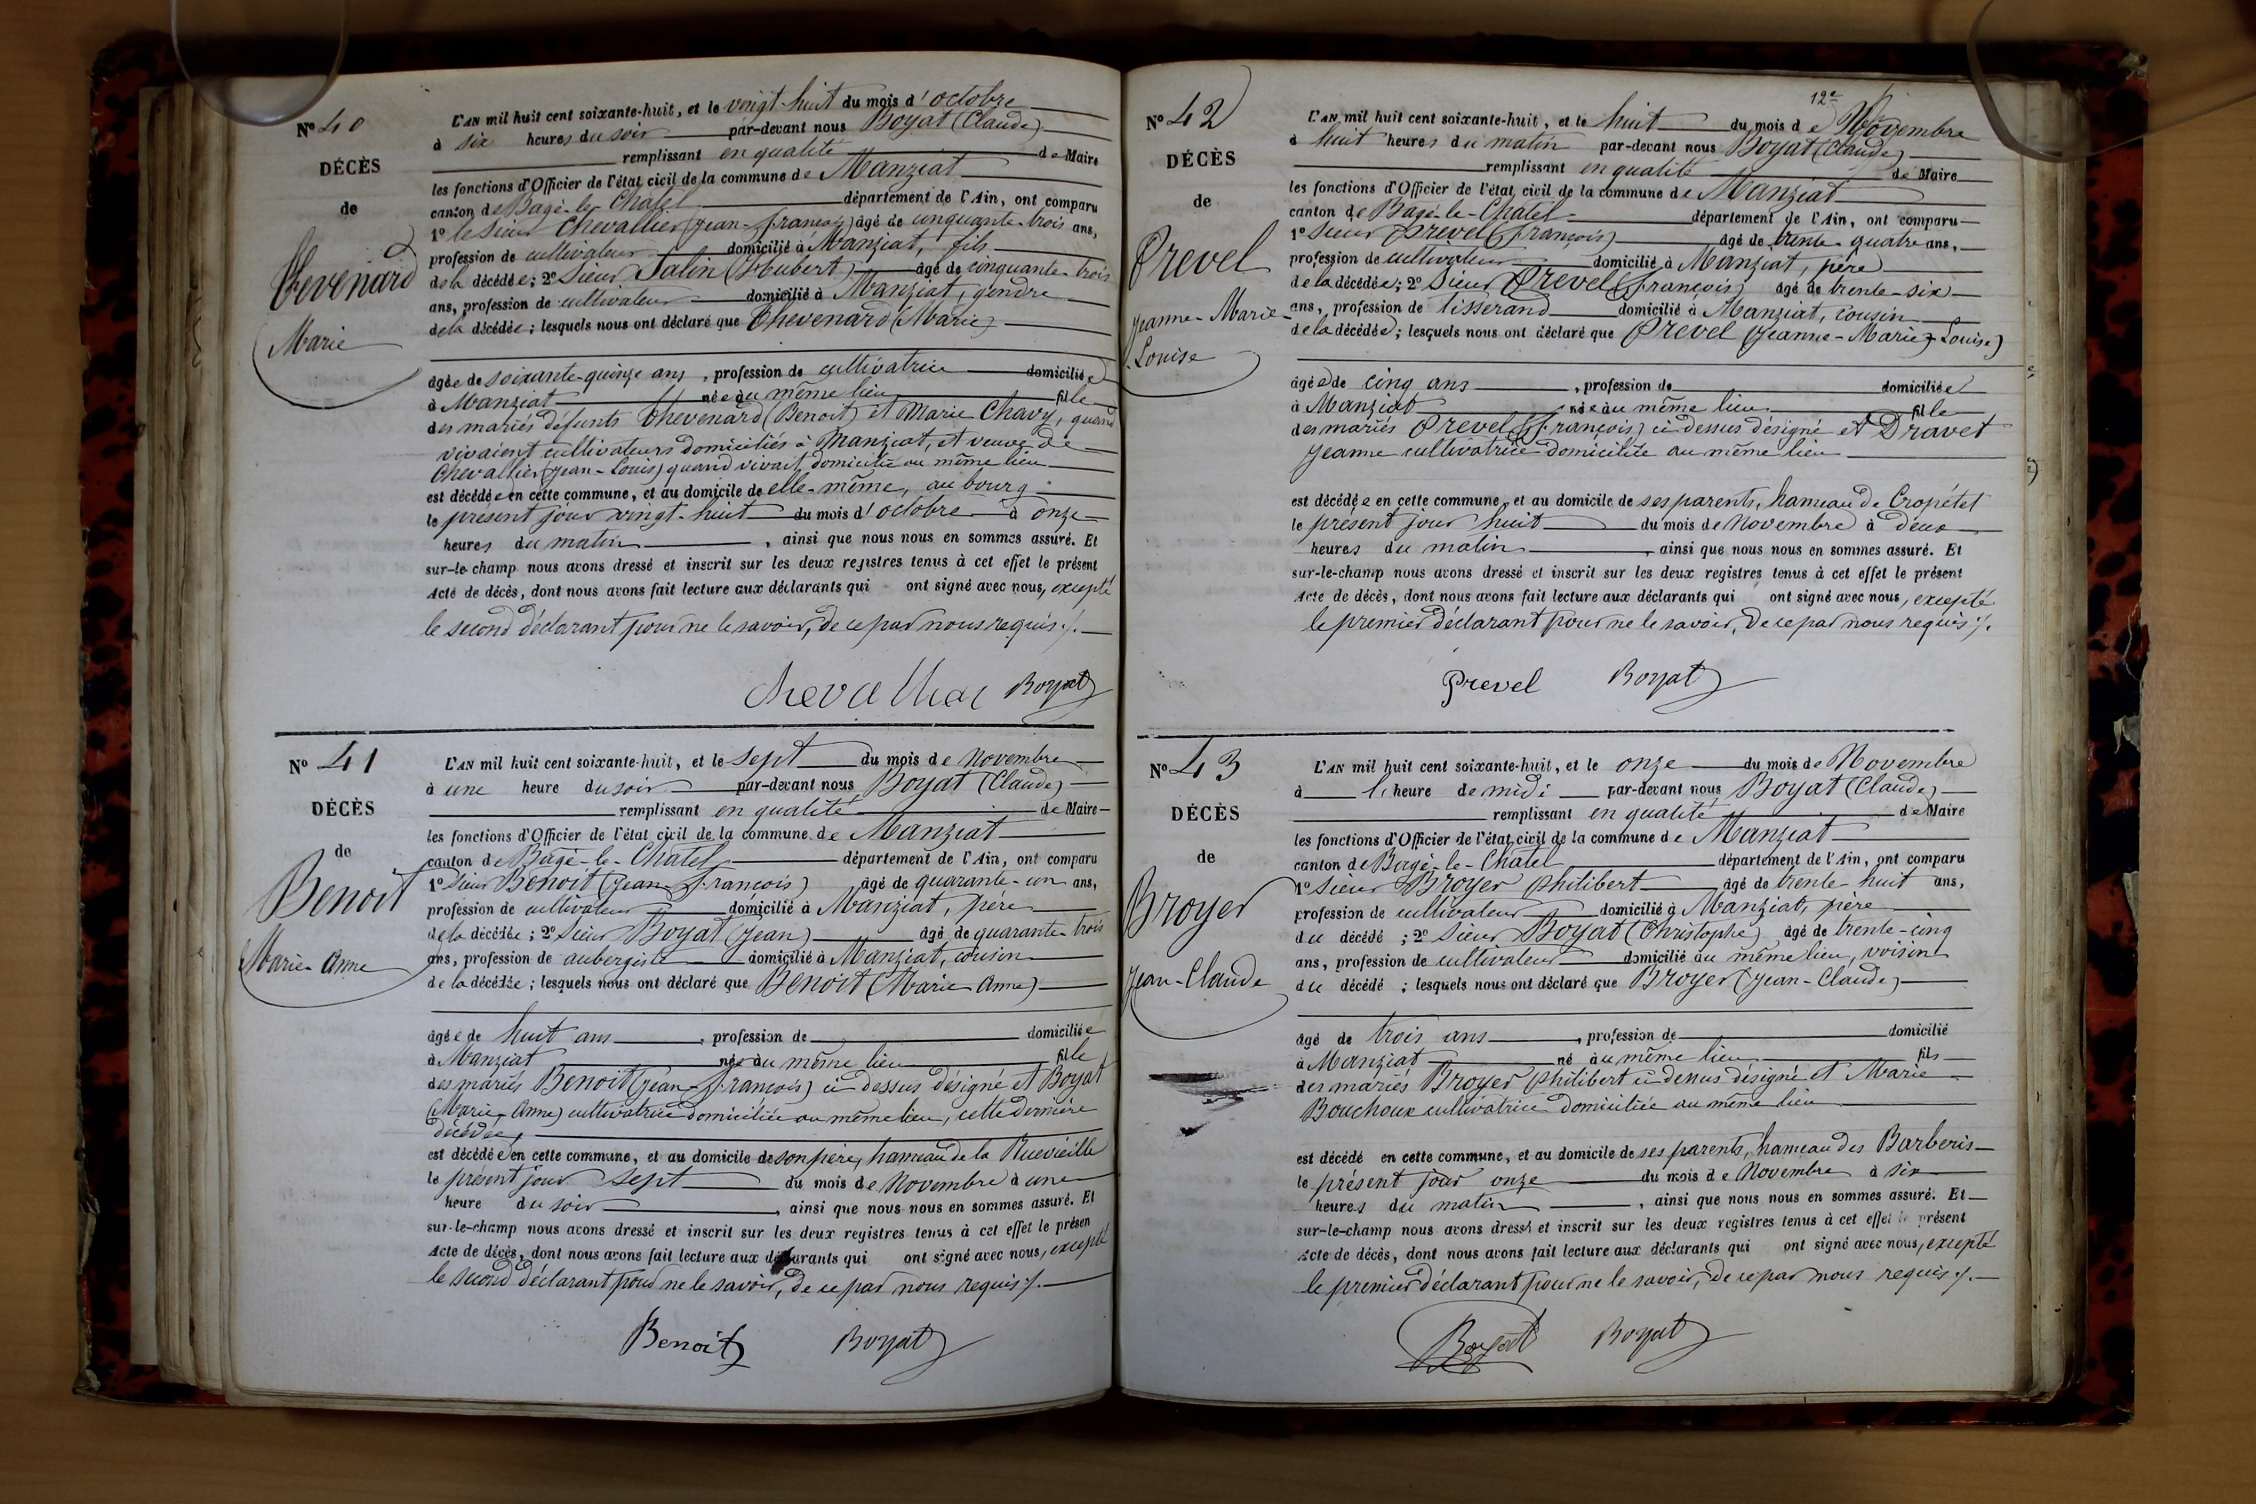 N° 40
DÉCÈS
de
Thevenard
Marie
L'AN mil huit cent soixante-huit, et le vingt-huit du mois d'octobre
à six heures du soir par-devant nous Boyat (Claude)
remplissant en qualité de Maire
les fonctions d'Officier de l'état civil de la commune de Manziat
canton de Bagé-le-Chatel département de l'Ain, ont comparu
1° le sieur Chevallier (Jean-François) âgé de cinquante-trois ans,
profession de cultivateur domicilié à Manziat, fils
de la décédée; 2° Sieur Salin (Hubert) âgé de cinquante-trois
ans, profession de cultivateur domicilié à Manziat, gendre
de la décédée; lesquels nous ont déclaré que Thevenard (Marie)
âgée de soixante-quinze ans, profession de cultivatrice domiciliée
à Manziat née au même lieu fille
des mariés défunts Thevenard (Benoit) et Marie Chavy, quand
vivaient cultivateurs domiciliés à Manziat, et veuve de
Chevallier (Jean-Louis) quand vivait domicilié au même lieu
est décédée en cette commune, et au domicile de elle-même, au bourg
le présent jour vingt-huit du mois d'octobre à onze
heures du matin, ainsi que nous nous en sommes assuré. Et
sur-le-champ nous avons dressé et inscrit sur les deux registres tenus à cet effet le présent
Acte de décès, dont nous avons fait lecture aux déclarants qui ont signé avec nous, excepté
le second déclarant pour ne le savoir, de ce par nous requis ./.
Chevallier Boyat
N° 41
DÉCÈS
de
Benoit
Marie-Anne
L'AN mil huit cent soixante-huit, et le sept du mois de Novembre
à une heure du soir par-devant nous Boyat (Claude)
remplissant en qualité de Maire
les fonctions d'Officier de l'état civil de la commune de Manziat
canton de Bagé-le-Chatel département de l'Ain, ont comparu
1° Sieur Benoit (Jean-François) âgé de quarante-un ans,
profession de cultivateur domicilié à Manziat, père
de la décédée; 2° Sieur Boyat (Jean) âgé de quarante-trois
ans, profession de aubergiste domicilié à Manziat, cousin
de la décédée; lesquels nous ont déclaré que Benoit (Marie Anne)
âgée de huit ans, profession de domiciliée
à Manziat née au même lieu fille
des mariés Benoit (Jean-François) ci-dessus désigné et Boyat
(Marie-Anne) cultivatrice domiciliée au même lieu, cette dernière
décédée,
est décédée en cette commune, et au domicile de son père, hameau de la Ruevieille
le présent jour sept du mois de Novembre à une
heure du soir, ainsi que nous nous en sommes assuré. Et
sur-le-champ nous avons dressé et inscrit sur les deux registres tenus à cet effet le présen
Acte de décès, dont nous avons fait lecture aux déclarants qui ont signé avec nous, excepté
le second déclarant pour ne le savoir, de ce par nous requis ./.
Benoit Boyat
12e
N° 42
DÉCÈS
de
Prevel
Jeanne-Marie-
Louise
L'AN mil huit cent soixante-huit, et le huit du mois de Novembre
à huit heures du matin par-devant nous Boyat (Claude)
remplissant en qualité de Maire
les fonctions d'Officier de l'état civil de la commune de Manziat
canton de Bagé-le-Chatel département de l'Ain, ont comparu
1° Sieur Prevel (François) âgé de trente-quatre ans,
profession de cultivateur domicilié à Manziat, père
de la décédée; 2° Sieur Prevel (François) âgé de trente-six
ans, profession de tisserand domicilié à Manziat, cousin
de la décédée; lesquels nous ont déclaré que Prevel (Jeanne-Marie-Louise)
âgée de cinq ans, profession de domiciliée
à Manziat née au même lieu fille
des mariés Prevel (François) ci-dessus désigné et Dravet
Jeanne cultivatrice domiciliée au même lieu
est décédée en cette commune, et au domicile de ses parents, hameau de Cropétet
le présent jour huit du mois de Novembre à deux
heures du matin, ainsi que nous nous en sommes assuré. Et
sur-le-champ nous avons dressé et inscrit sur les deux registres tenus à cet effet le présent
Acte de décès, dont nous avons fait lecture aux déclarants qui ont signé avec nous, excepté
le premier déclarant pour ne le savoir, de ce par nous requis ./.
Prevel Boyat
N° 43
DÉCÈS
de
Broyer
Jean-Claude
L'AN mil huit cent soixante-huit, et le onze du mois de Novembre
à l'heure de midi par-devant nous Boyat (Claude)
remplissant en qualité de Maire
les fonctions d'Officier de l'état civil de la commune de Manziat
canton de Bagé-le-Chatel département de l'Ain, ont comparu
1° Sieur Broyer Philibert âgé de trente-huit ans,
profession de cultivateur domicilié à Manziat, père
du décédé; 2° Sieur Boyat (Christophe) âgé de trente-cinq
ans, profession de cultivateur domicilié au même lieu, voisin
du décédé; lesquels nous ont déclaré que Broyer (Jean-Claude)
âgé de trois ans, profession de domicilié
à Manziat né au même lieu fils
des mariés Broyer Philibert ci-dessus désigné et Marie
Bouchoux cultivatrice domiciliée au même lieu
est décédé en cette commune, et au domicile de ses parents, hameau des Barberis
le présent jour onze du mois de Novembre à six
heures du matin, ainsi que nous nous en sommes assuré. Et
sur-le-champ nous avons dressé et inscrit sur les deux registres tenus à cet effet le présent
Acte de décès, dont nous avons fait lecture aux déclarants qui ont signé avec nous, excepté
le premier déclarant pour ne le savoir, de ce par nous requis ./.
Boyat Boyat